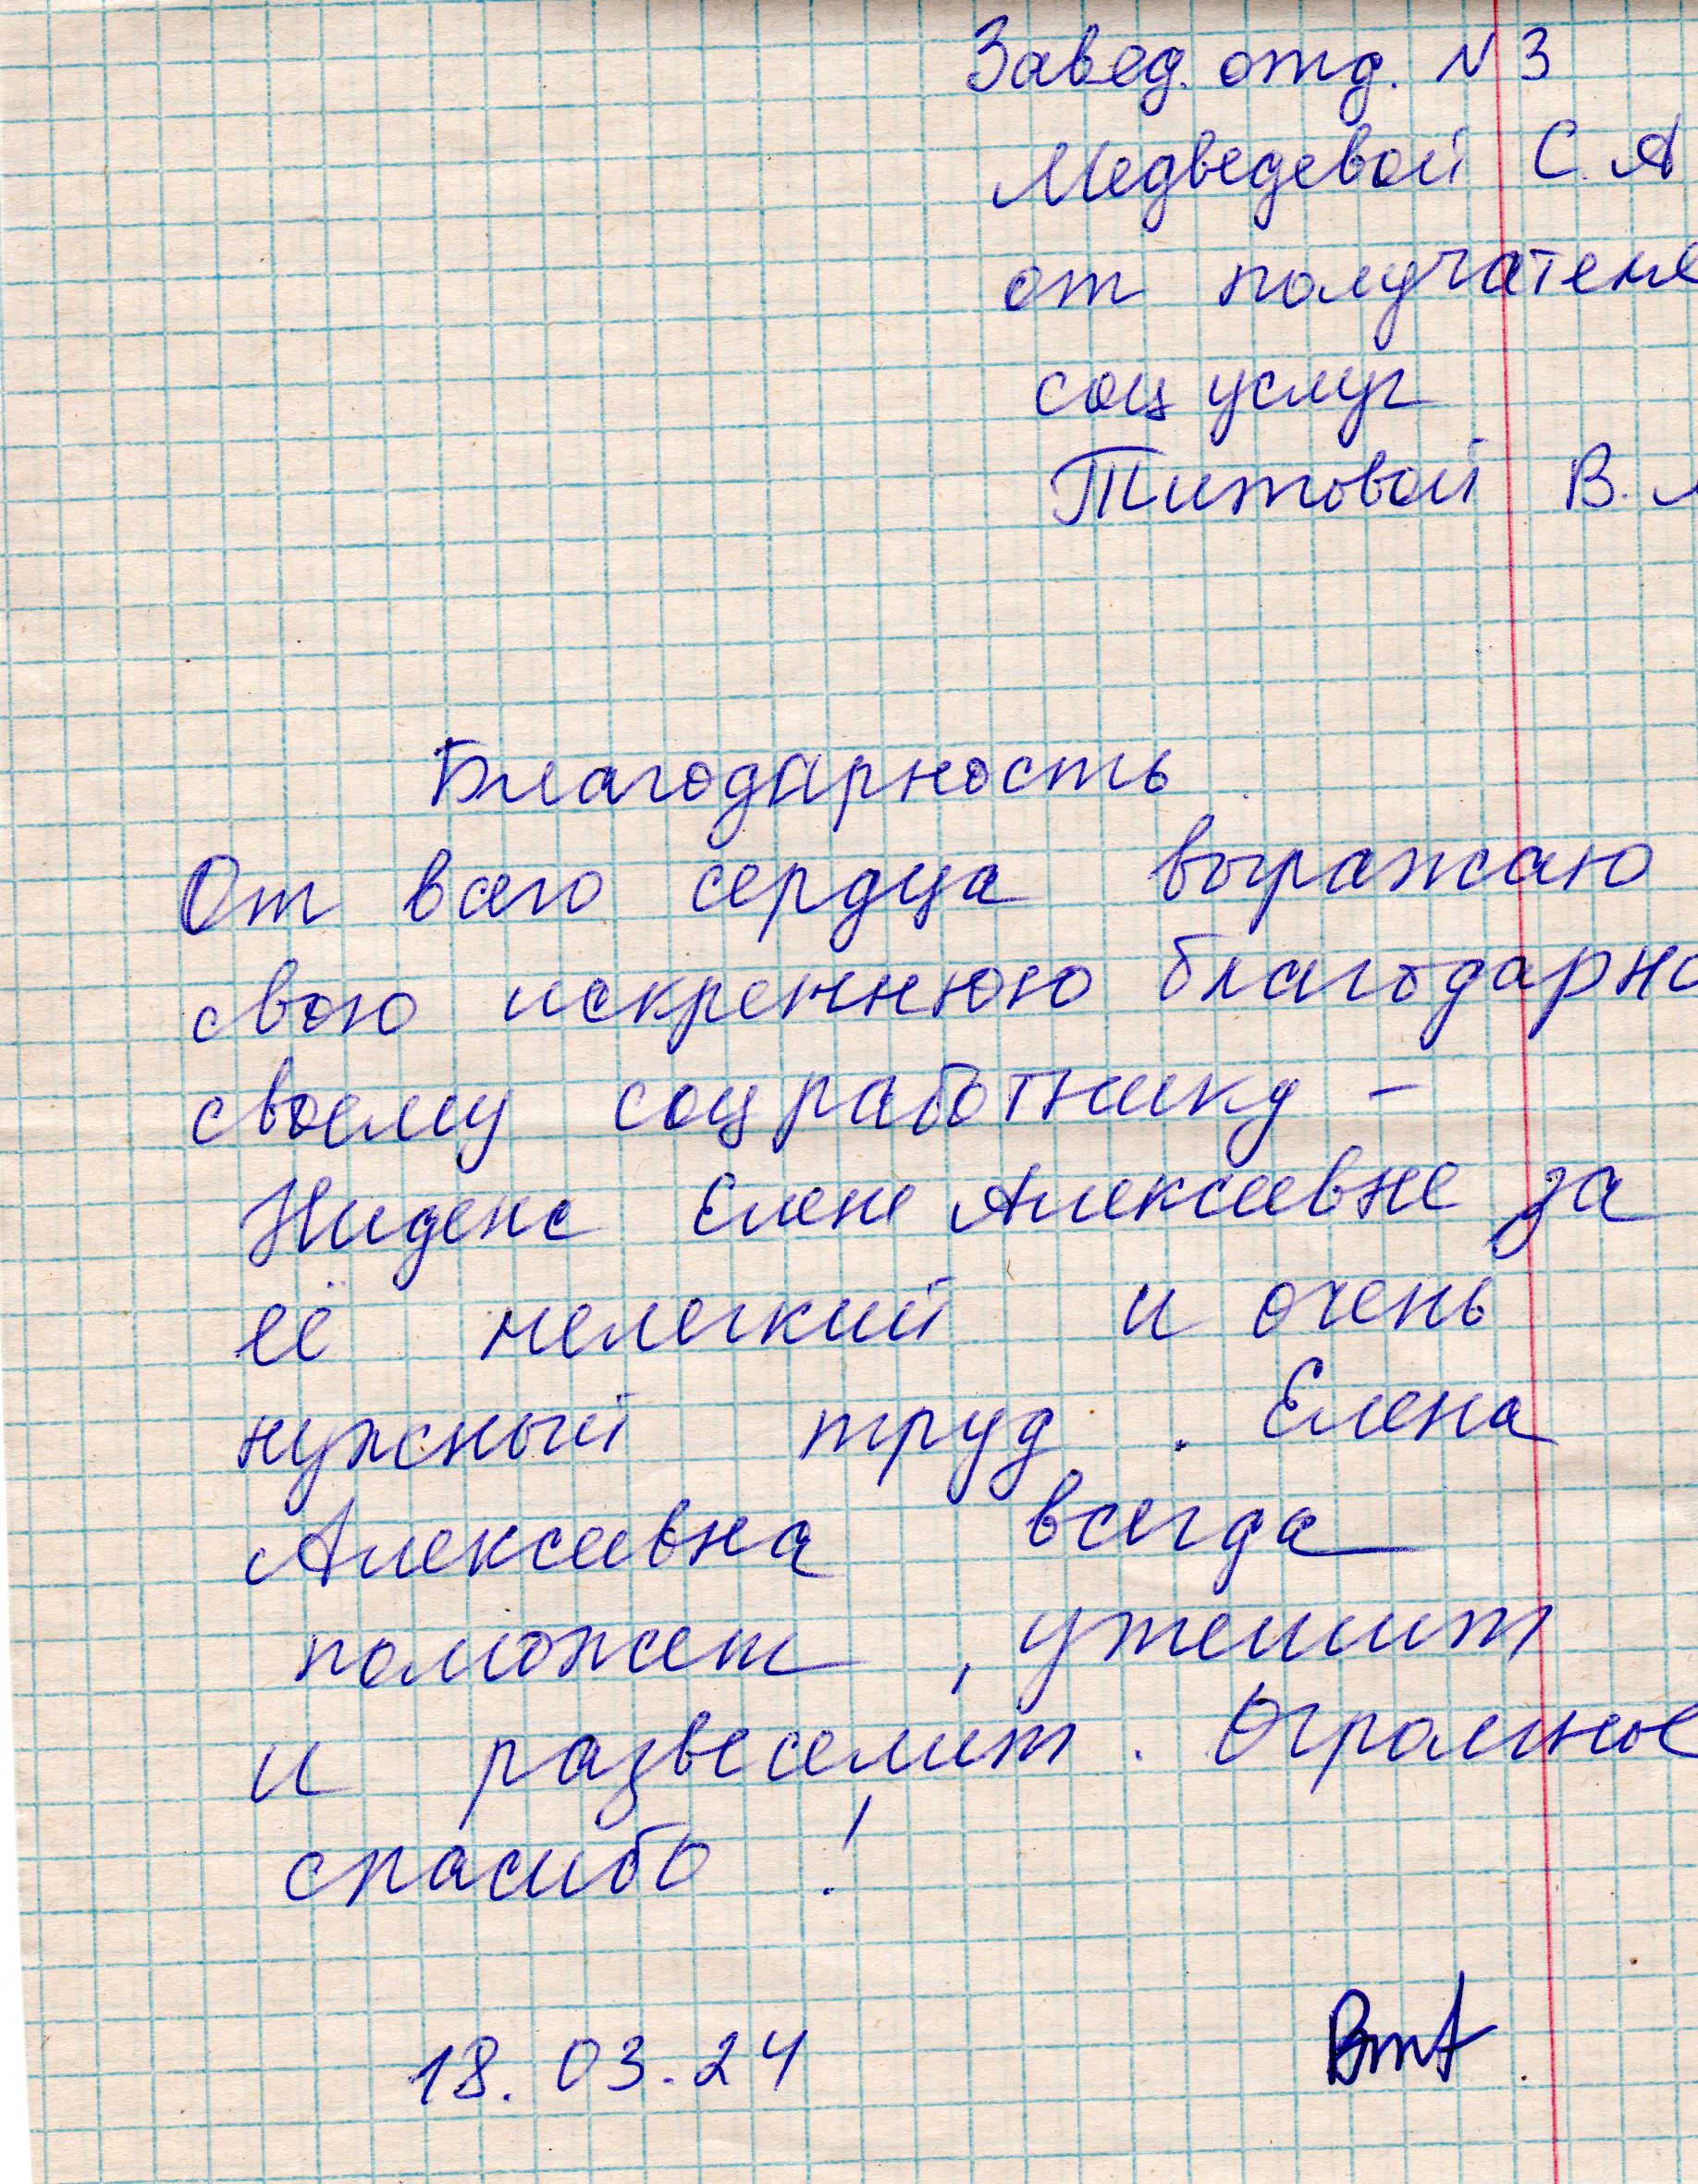 Завед. отд. N 3
Медведевой С. А
от получателя
соц услуг
Титовой В.
Благодарность
От всего сердца выражаю
свою искреннюю благодарно
своему соцработнику -
Нидене Елене Алексеевне за
её нелегкий и очень
нужный труд. Елена
Алексеевна всегда
поможет, утешит
и развеселит. Огромное
спасибо!
18.03.24